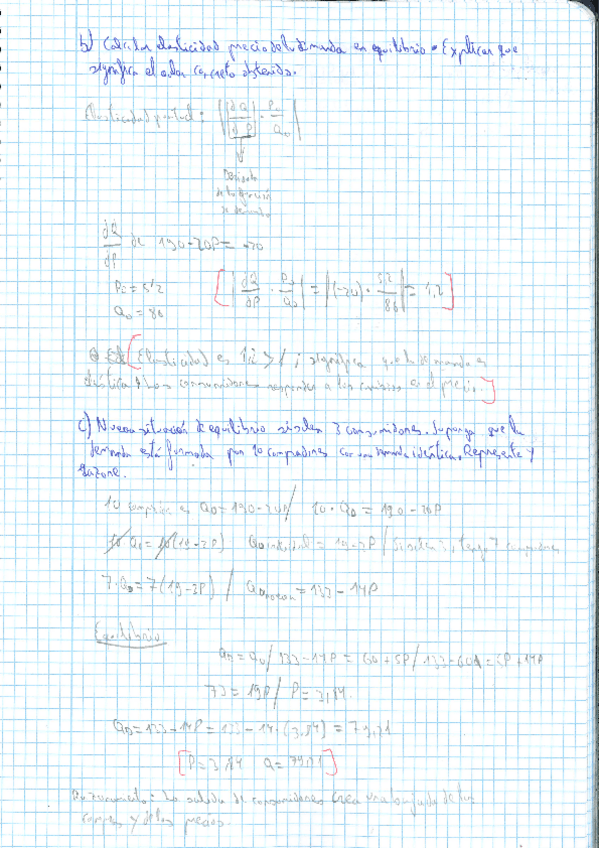 b) Calcular elasticidad precio de la demanda en equilibrio. Explicar que
significa el valor concreto obtenido.
Elasticidad puntual: | [dQ/dP] · P0/Q0 |
↓
Derivada
de la función
de demanda
dQ/dP de 190-20P = -20
P0 = 5'2
Q0 = 86
[ | dQ/dP · P0/Q0 | = |(-20) · 5,2/86| = 1,2 ]
[Elasticidad es 1,2 > 1 ; significa que la demanda es
elástica y los consumidores responden a los cambios en el precio.]
c) Nueva situación de equilibrio si salen 3 consumidores. Suponga que la
demanda está formada por 10 compradores con una demanda idéntica. Represente y
Razone.
10 QD = 190-20P / 10 · QD = 190-20P
10 QD = 10(19-2P) QD = 19-2P / 3, tengo 7
7·QD = 7(19-2P) / QD = 133-14P
Equilibrio
QD = QO / 133-14P = 60+5P / 133-60 = 5P+14P
73 = 19P / P = 3,84
QD = 133-14P = 133-14·(3,84) = 79,21
[P=3,84 Q=79,21]
: La salida de consumidores crea una bajada de las
y de los precios.